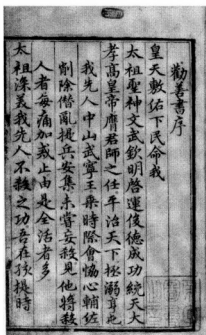 勸善書序
皇天敷佑下民命我
太祖聖神文武欽明啓運俊德成功統天大
孝高皇帝膺君師之任平治天下拯溺亨屯
我先人中山武寧王乘時際會協心輔佐
削除僭亂提兵安集未嘗妄殺見他將殺
人者每痛加戒止由是全活者多
太祖深美我先人不殺之功吾在孩提時